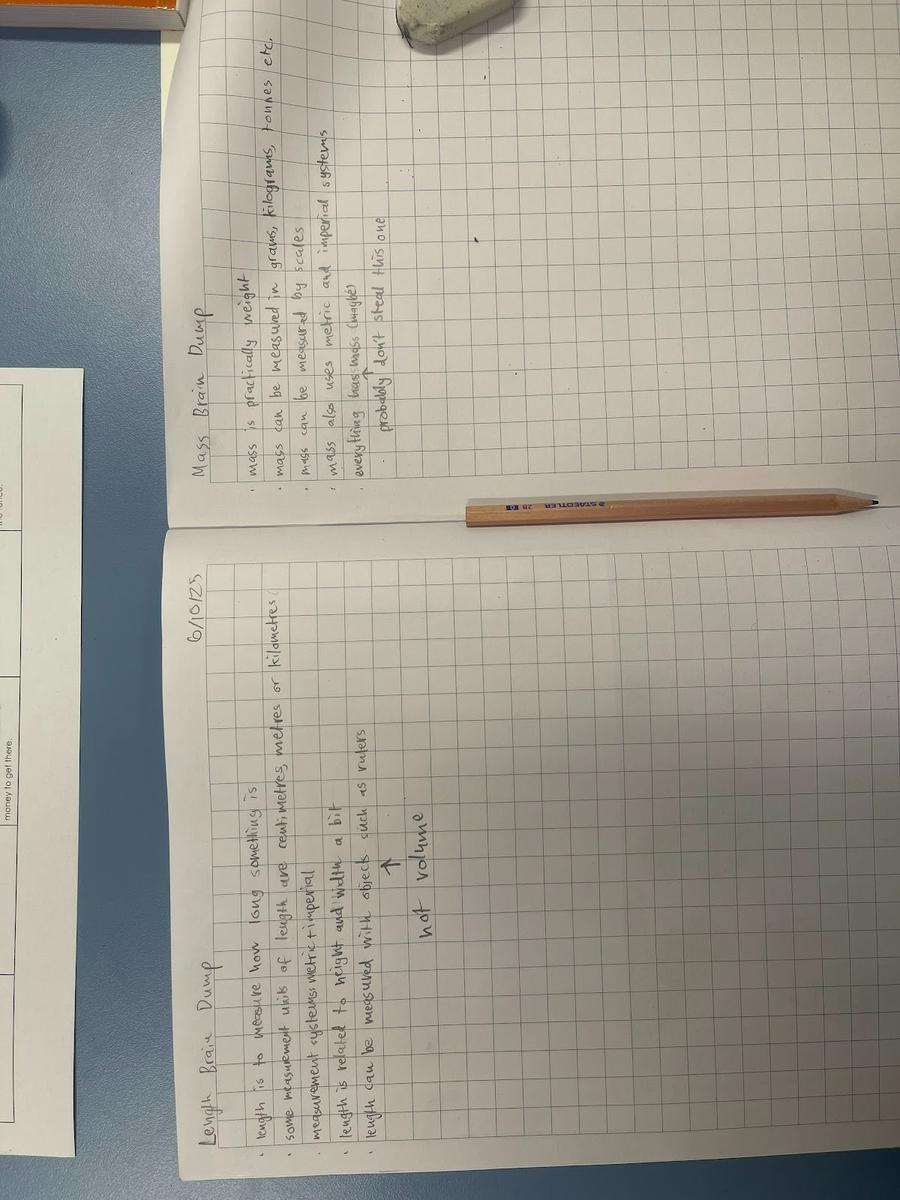 Length Brain Dump
6/10/25
· length is to measure how long something is
· some measurement units of length are centimetres, metres or kilometres
· measurement systems: metric + imperial
· length is related to height and width a bit
· length can be measured with objects such as rulers
↑
not volume
Mass Brain Dump
· mass is practically weight
· mass can be measured in grams, kilograms, tonnes etc.
· mass can be measured by scales
· mass also uses metric and imperial systems
· everything has mass (maybe)
↑
probably don't steal this one
STAEDTLER 2B
money to get there.